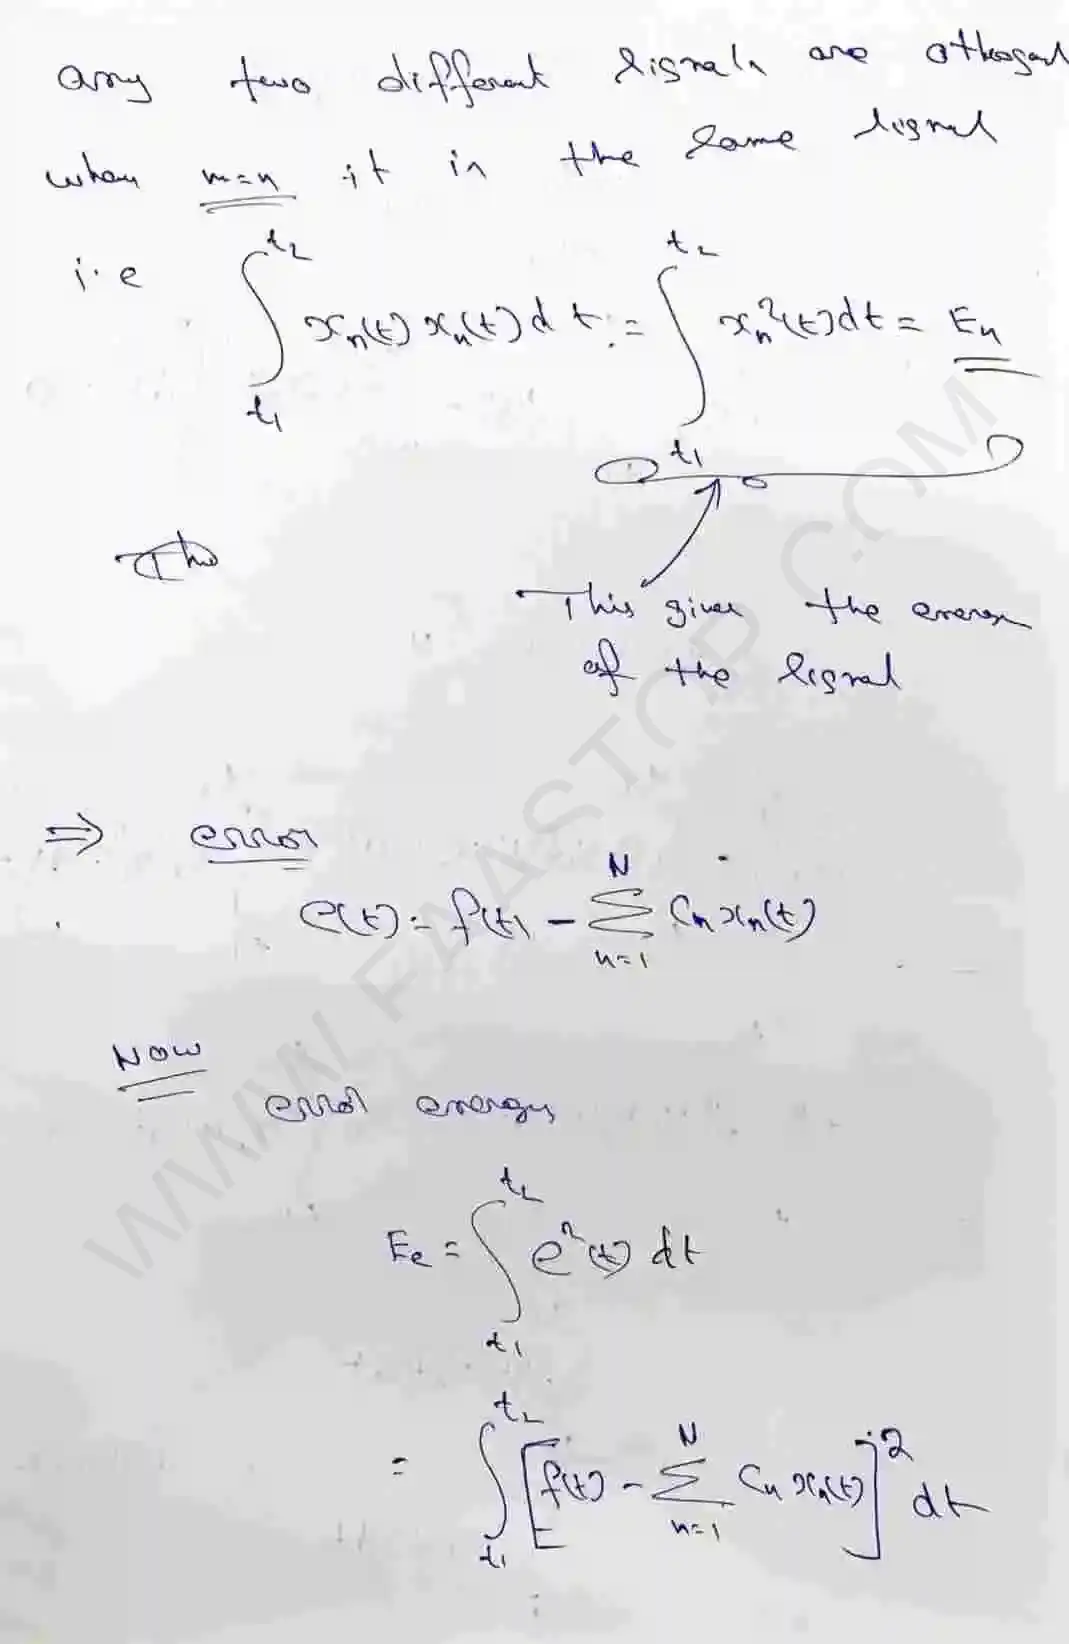 any two different signals are othogonal
when m=n it is the same signal
i.e ∫_{t1}^{t2} x_n(t) x_n(t) dt = ∫_{t1}^{t2} x_n²(t) dt = E_n
This gives the energy
of the signal
⇒ error
e(t) = f(t) - Σ_{n=1}^{N} C_n x_n(t)
NOW
error energy
E_e = ∫_{t1}^{t2} e²(t) dt
= ∫_{t1}^{t2} [f(t) - Σ_{n=1}^{N} C_n x_n(t)]² dt
WWW.FAASTOP.COM